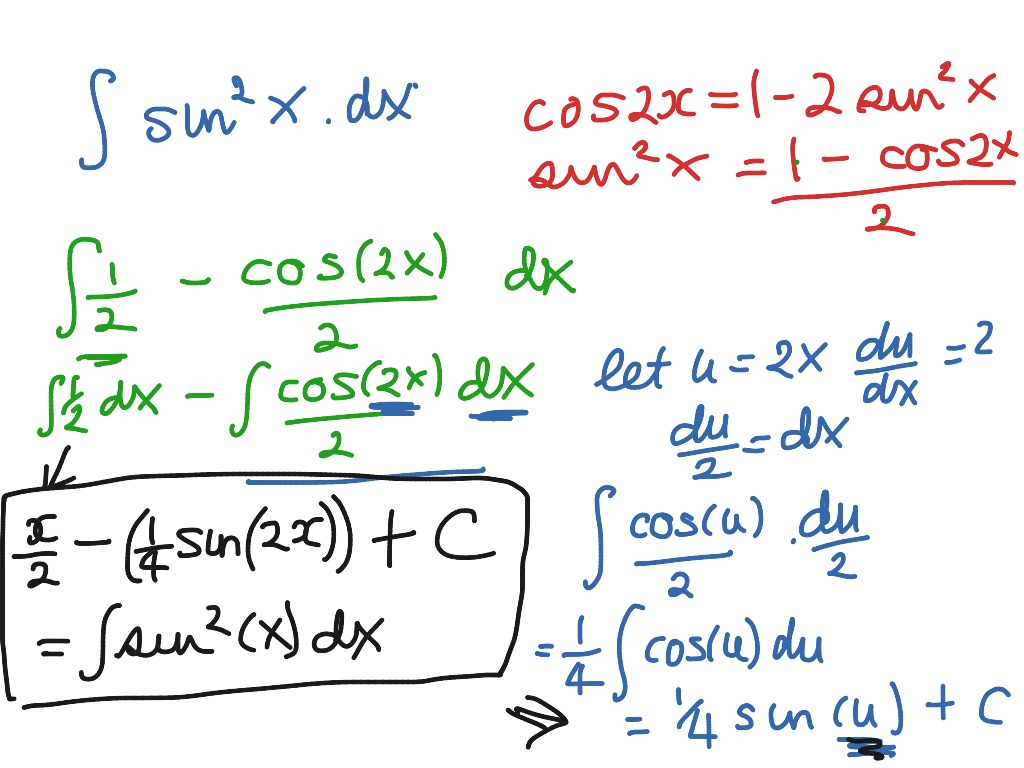 ∫ sin²x . dx
cos2x = 1 - 2 sin²x
sin²x = (1 - cos2x)/2
∫ 1/2 - cos(2x)/2 dx
∫ 1/2 dx - ∫ cos(2x)/2 dx
let u = 2x du/dx = 2
du/2 = dx
∫ cos(u)/2 . du/2
= 1/4 ∫ cos(u) du
⇒ = 1/4 sin(u) + C
x/2 - (1/4 sin(2x)) + C
= ∫ sin²(x) dx